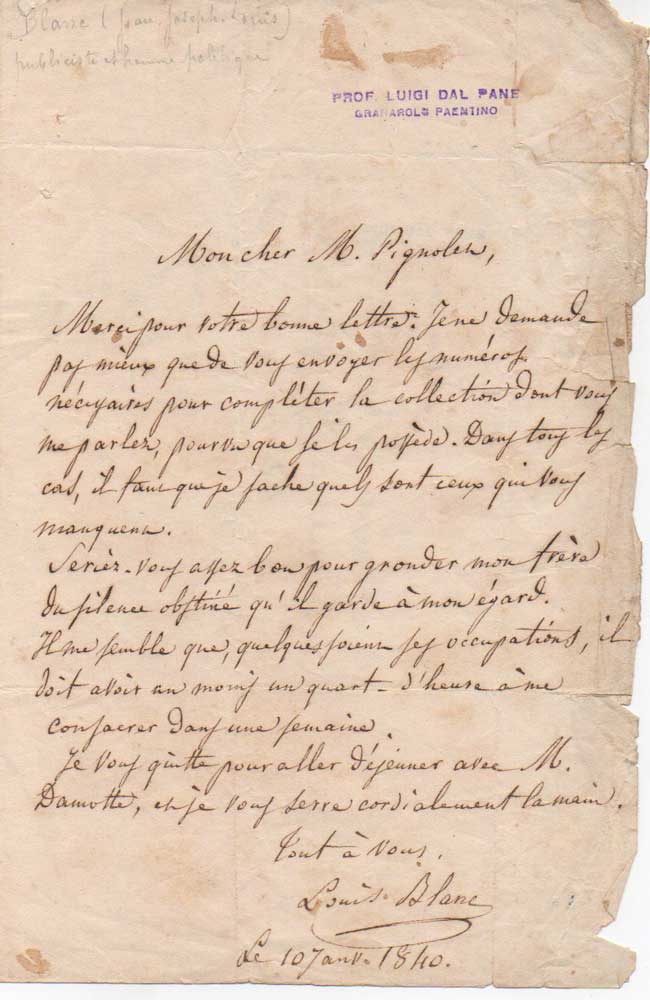 Blanc (Jean. Joseph. Louis)
publiciste et homme politique
PROF. LUIGI DAL PANE
GRANAROLO FAENTINO
Mon cher M. Pignolen,
Merci pour votre bonne lettre. Je ne demande
pas mieux que de vous envoyer les numéros
nécessaires pour compléter la collection dont vous
me parlez, pourvu que je les possède. Dans tous les
cas, il faut que je sache quels sont ceux qui vous
manquent.
Seriez-vous assez bon pour gronder mon frère
du silence obstiné qu'il garde à mon égard.
Il me semble que, quelques soient ses occupations, il
doit avoir au moins un quart-d'heure à me
consacrer dans une semaine.
Je vous quitte pour aller déjeuner avec M.
Damotte, et je vous serre cordialement la main.
Tout à vous.
Louis Blanc
Le 10 Janv. 1840.